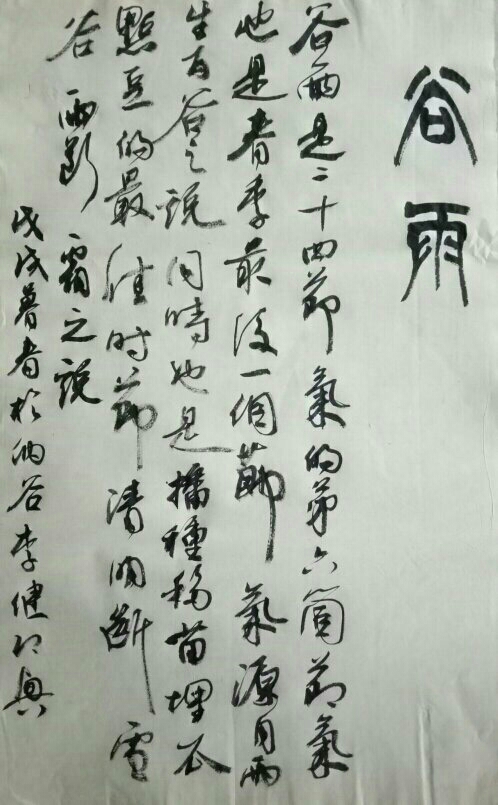 谷雨
谷雨是二十四節氣的第六箇節氣
也是春季最後一個節氣源自雨
生百谷之說同時也是播種移苗埋瓜
點豆的最佳时節清明断雪
谷雨断霜之說
戊戌暮春於納谷李健